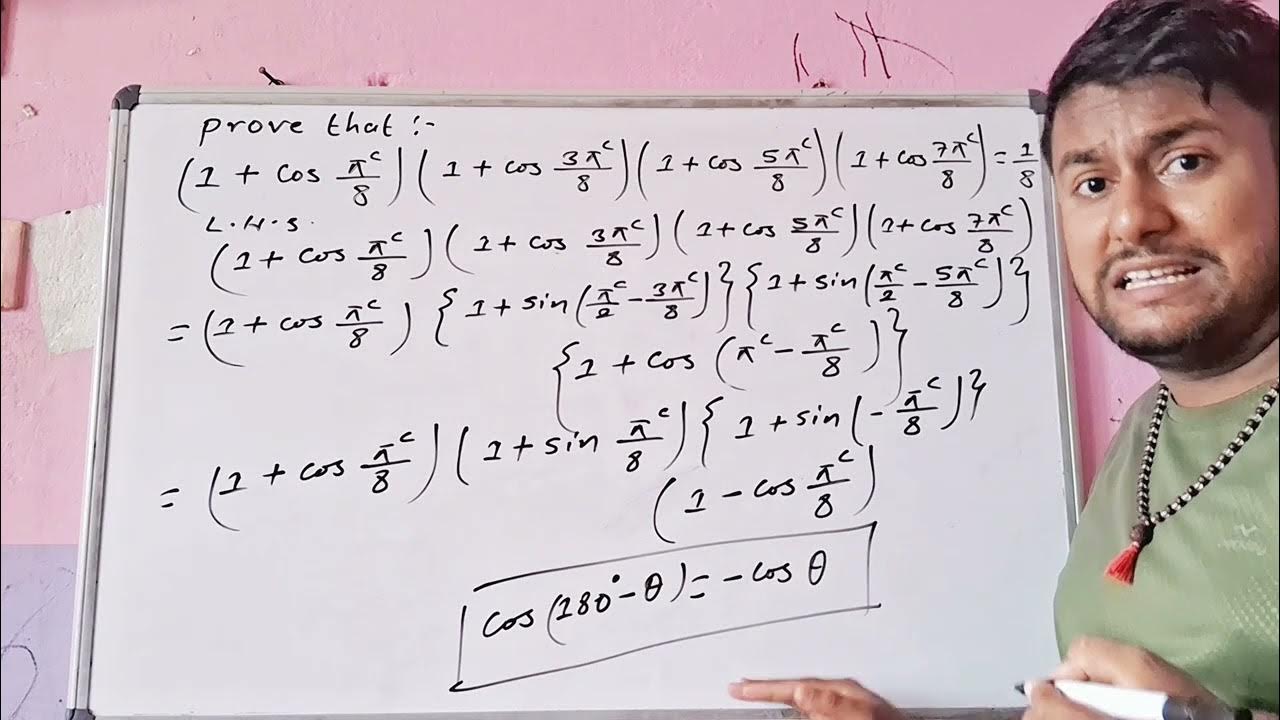 prove that :-
(1 + cos π^c/8) (1 + cos 3π^c/8) (1 + cos 5π^c/8) (1 + cos 7π^c/8) = 1/8
L.H.S.
(1 + cos π^c/8) (1 + cos 3π^c/8) (1 + cos 5π^c/8) (1 + cos 7π^c/8)
= (1 + cos π^c/8) {1 + sin (π^c/2 − 3π^c/8)} {1 + sin (π^c/2 − 5π^c/8)}
{1 + cos (π^c − π^c/8)}
= (1 + cos π^c/8) (1 + sin π^c/8) {1 + sin (− π^c/8)}
(1 − cos π^c/8)
cos (180° − θ) = − cos θ